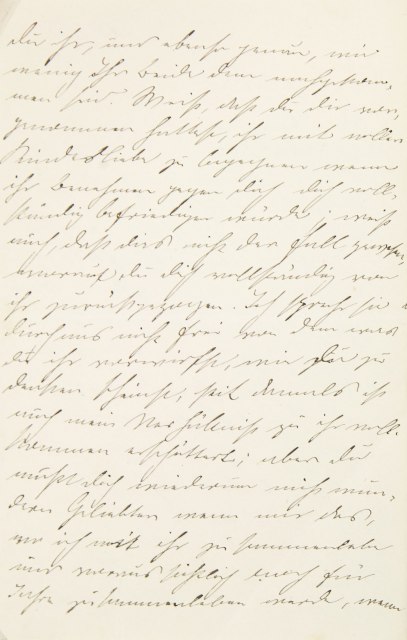 du ihr, und ebenso genau, wie
wenig Ihr beide dem nachgekom-
men seid. Weiß, daß du dir vor-
genommen hattest, ihr mit voller
Kindesliebe zu begegnen wenn
ihr Benehmen gegen dich dich voll-
ständig befriedigen würde; weiß
auch, daß dies nicht der Fall gewesen,
worauf du dich vollständig von
ihr zurückgezogen. Ich spreche sie
durchaus nicht frei von dem was
du ihr vorwirfst, wie du zu
denken scheinst, seit damals ist
auch mein Verhältniß zu ihr voll-
kommen erschüttert; aber du
mußt dich wiederum nicht wun-
dern Geliebter wenn mir das,
wo ich mit ihr zusammenlebe
und voraussichtlich noch für
Jahre zusammenleben werde, wenn